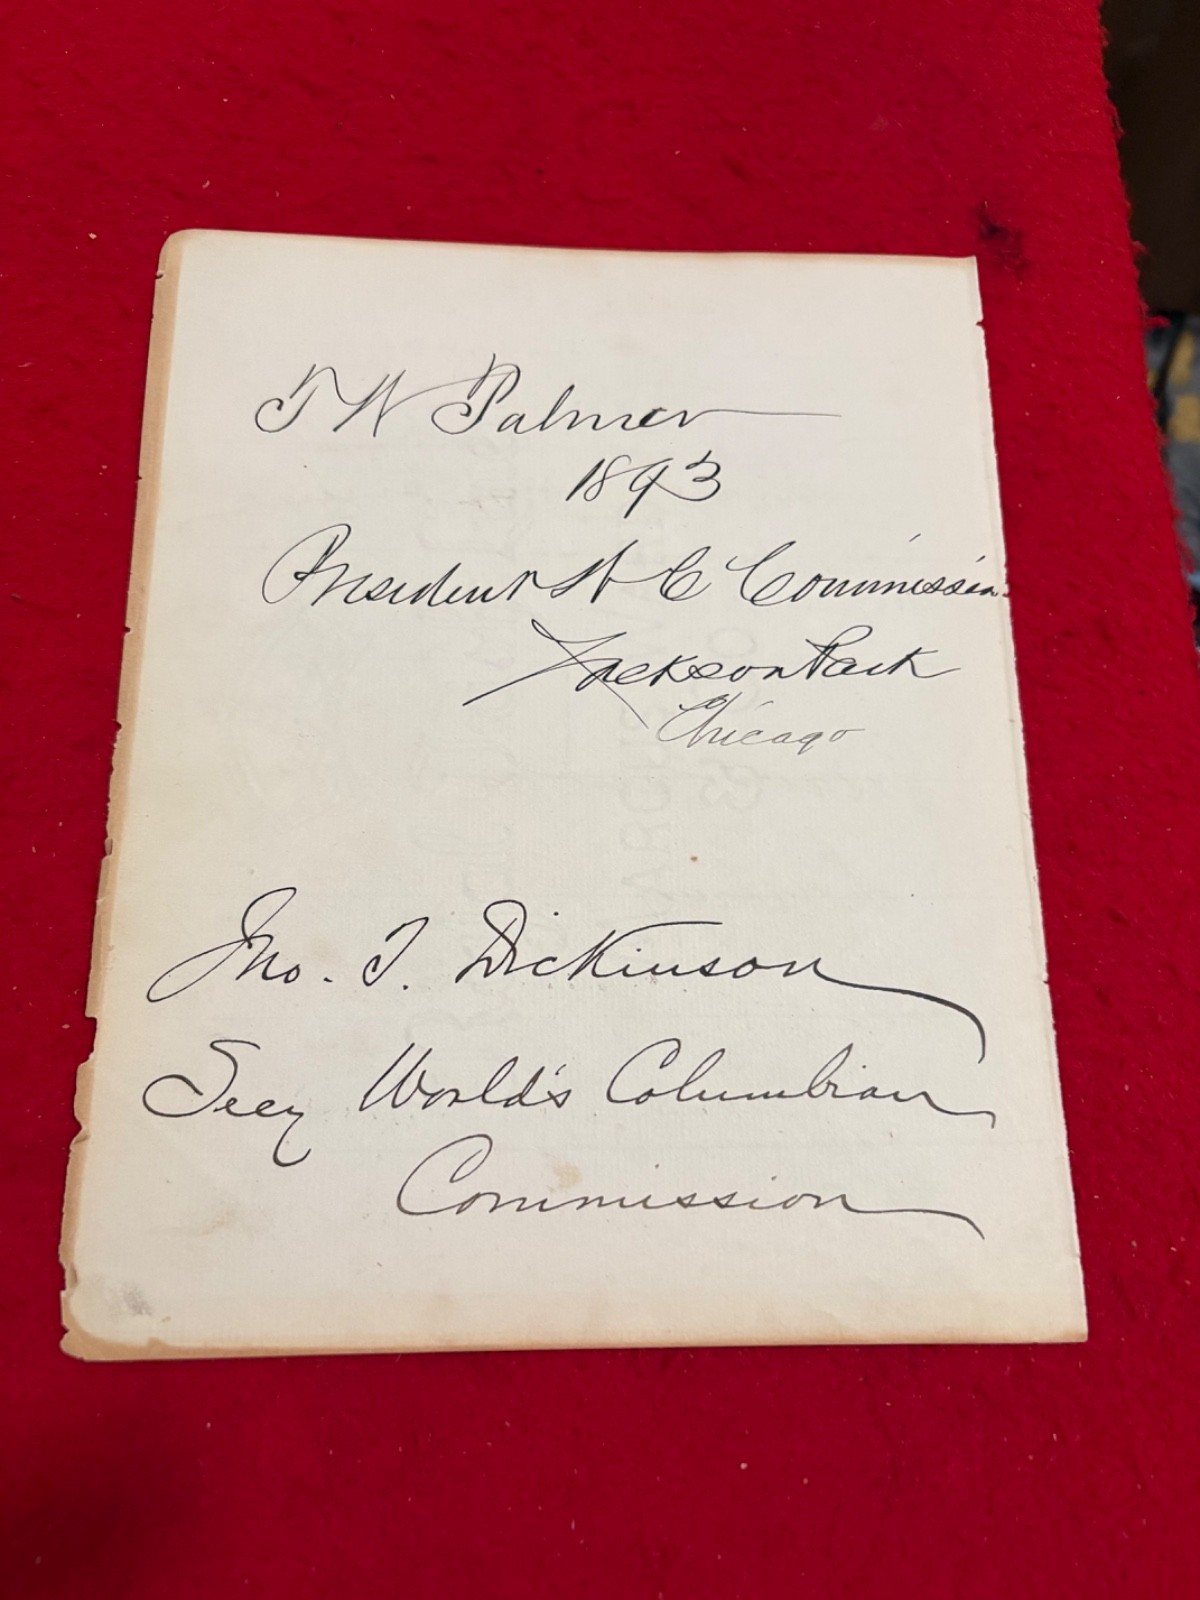 T W Palmer
1893
President W C Commission
Jackson Park
Chicago
Jno. T. Dickinson
Secy World's Columbian
Commission